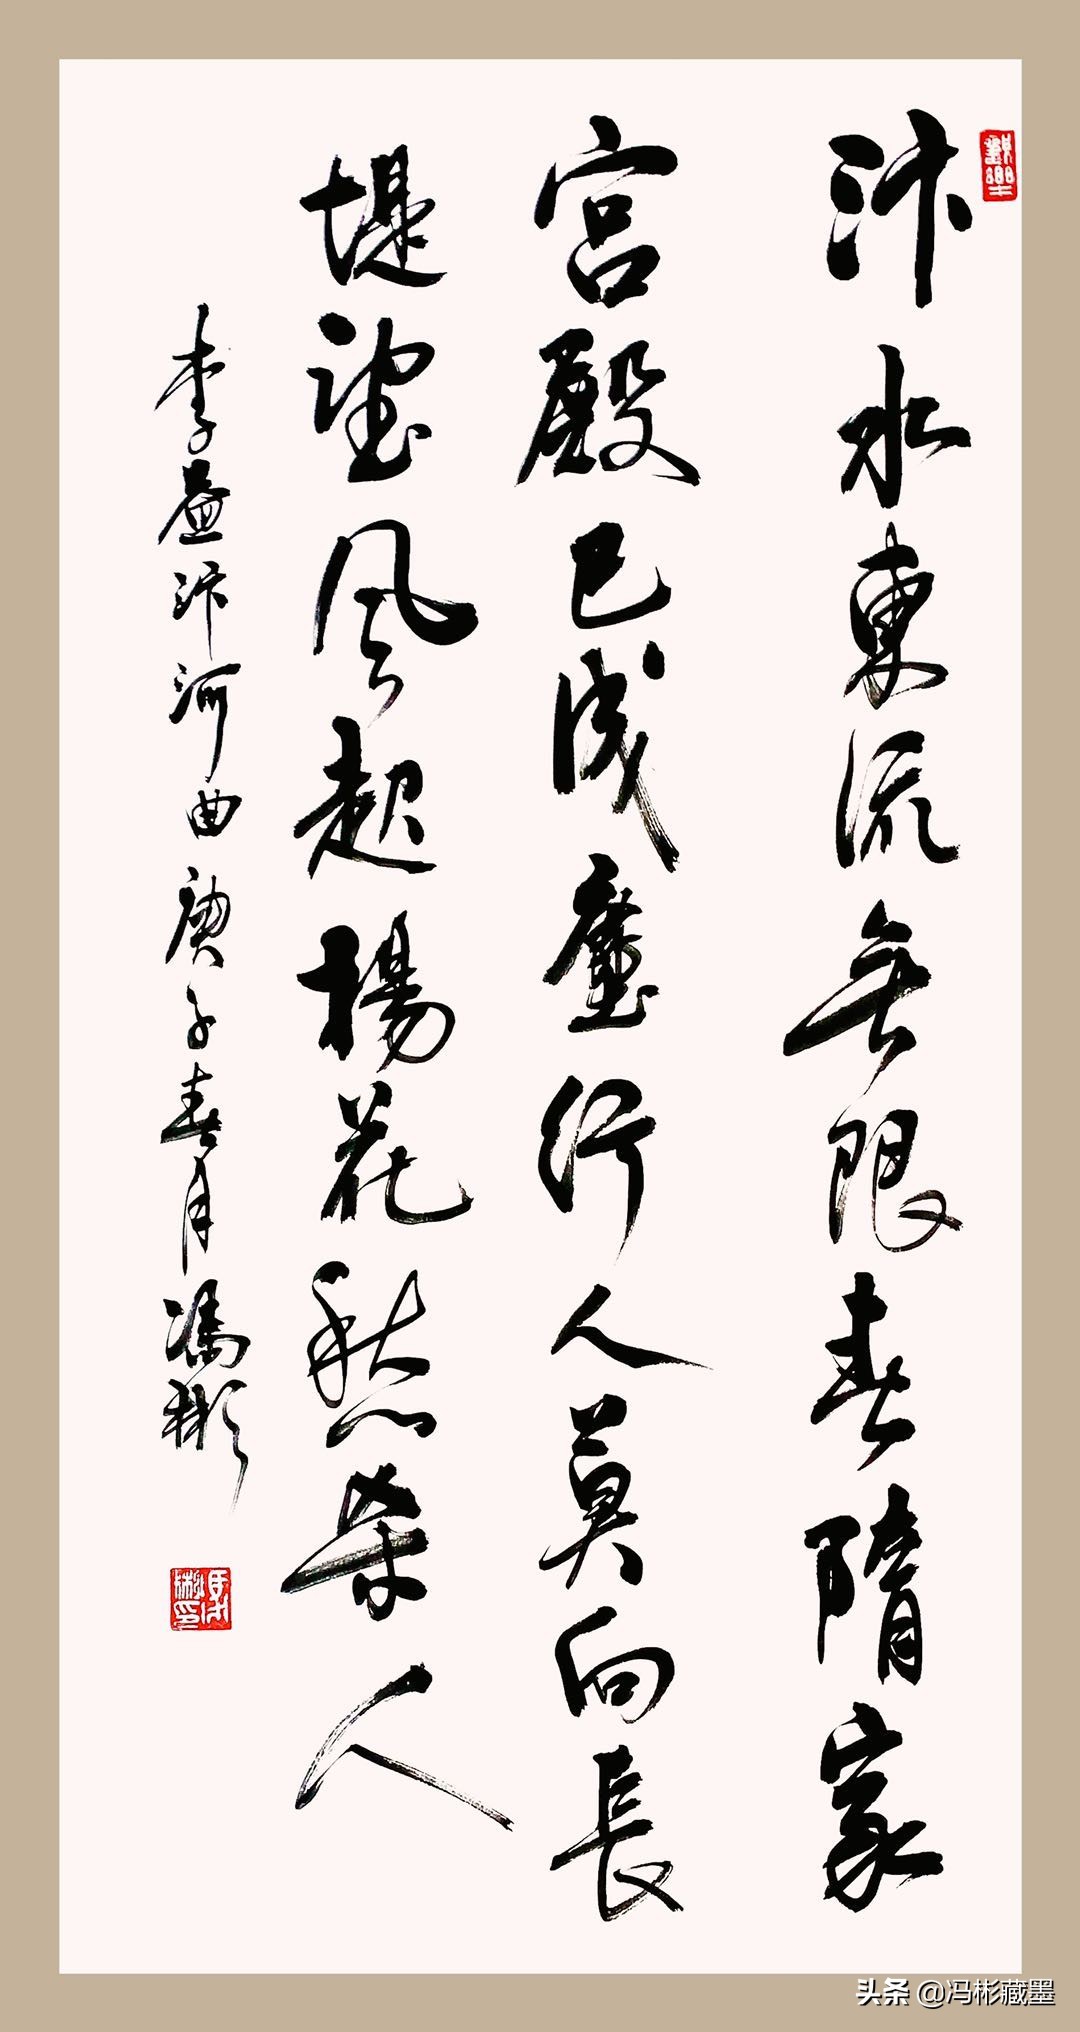 汴水東流无限春隋家
宫殿已成塵行人莫向長
堤望風起楊花愁殺人
李益汴河曲庚子春月馮彬
头条 @冯彬藏墨